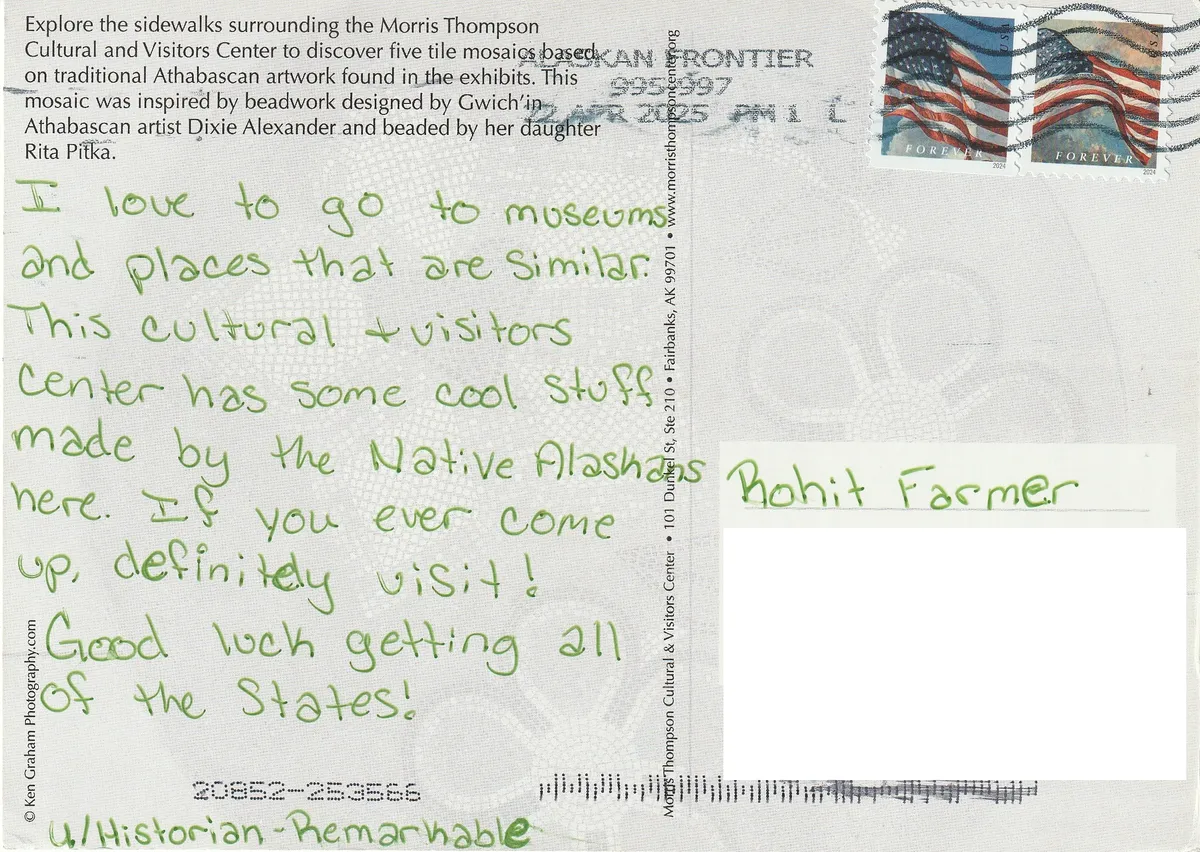 Explore the sidewalks surrounding the Morris Thompson
Cultural and Visitors Center to discover five tile mosaics based
on traditional Athabascan artwork found in the exhibits. This
mosaic was inspired by beadwork designed by Gwich'in
Athabascan artist Dixie Alexander and beaded by her daughter
Rita Pitka.
ALASKAN FRONTIER
995 997
22 APR 2025 PM 1 L
USA
FOREVER
2024
USA
FOREVER
2024
I love to go to museums
and places that are similar.
This cultural + visitors
center has some cool stuff
made by the Native Alaskans
here. If you ever come
up, definitely visit!
Good luck getting all
of the States!
u/Historian-Remarkable
© Ken Graham Photography.com
Morris Thompson Cultural & Visitors Center • 101 Dunkel St, Ste 210 • Fairbanks, AK 99701 • www.morristhompsoncenter.org
Rohit Farmer
20852-253566